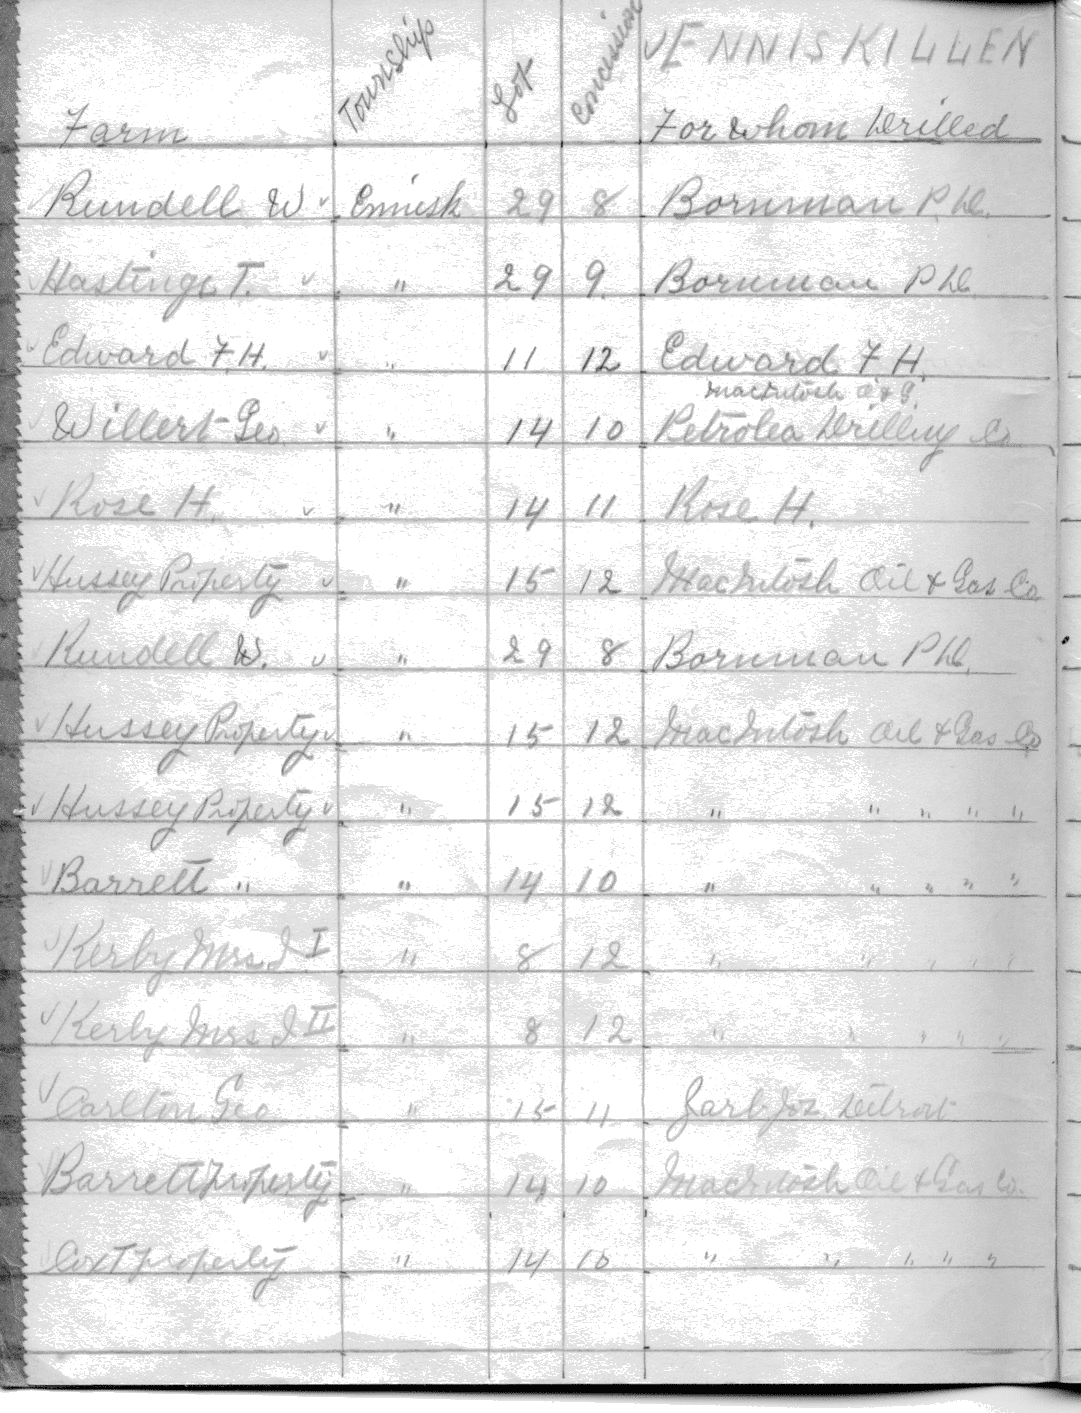 ✓ENNISKILLEN
Farm Township Lot Concession For Whom Drilled
Rundell W ✓ Ennisk 29 8 Bornman P.
✓ Hastings T. ✓ " 29 9. Bornman P
✓ Edward F.H. ✓ " 11 12 Edward F H.
MacIntosh O & G.
✓ Willert Geo. ✓ " 14 10 Petrolea Drilling Co
✓ Rose H. ✓ " 14 11 Rose H.
✓ Hussey Property ✓ " 15 12 MacIntosh Oil & Gas Co
✓ Rundell W. ✓ " 29 8 Bornman P
✓ Hussey Property ✓ " 15 12 MacIntosh Oil & Gas Co
✓ Hussey Property ✓ " 15 12 " " " " "
✓ Barrett " " 14 10 " " " " "
✓ Kerby Mrs J I " 8 12 " " " " "
✓ Kerby Mrs J II " 8 12 " " " " "
✓ Carlton Geo " 15 11 Detroit
✓ Barrett property " 14 10 MacIntosh Oil & Gas Co.
property " 14 10 " " " " "